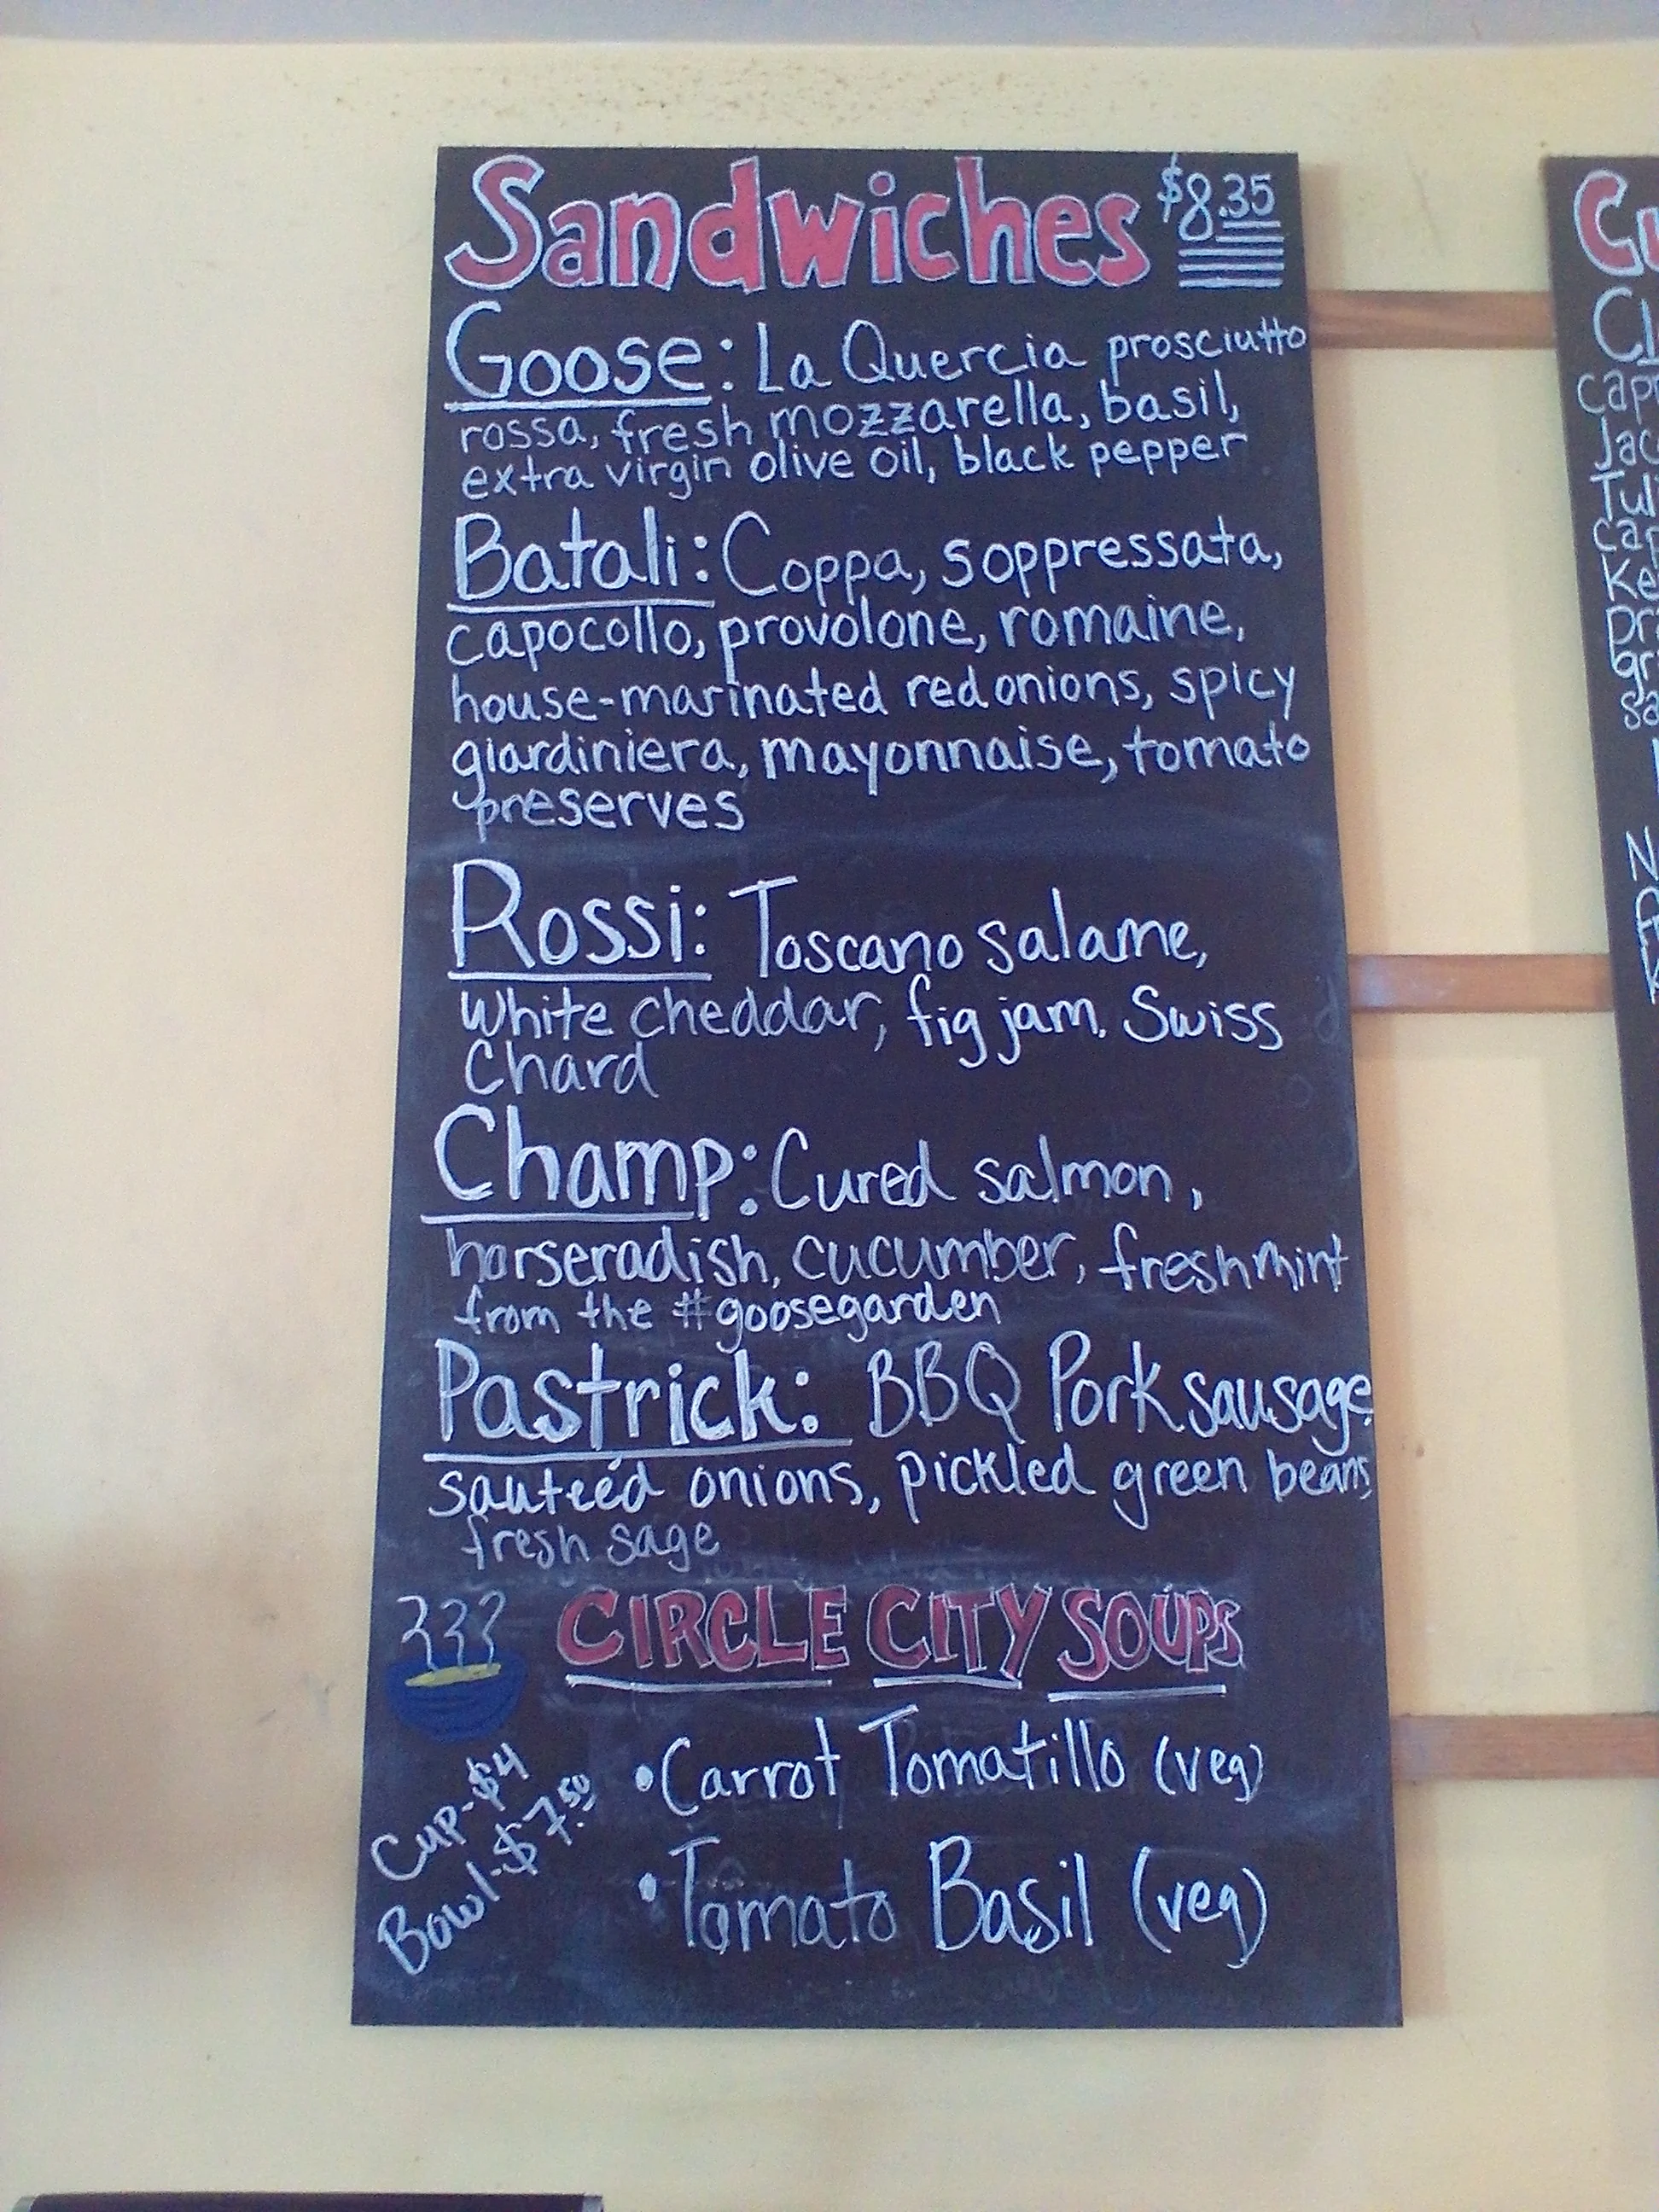 Sandwiches $8.35
Goose: La Quercia prosciutto
rossa, fresh mozzarella, basil,
extra virgin olive oil, black pepper
Batali: Coppa, soppressata,
capocollo, provolone, romaine,
house-marinated red onions, spicy
giardiniera, mayonnaise, tomato
preserves
Rossi: Toscano salame,
white cheddar, fig jam. Swiss
Chard
Champ: Cured salmon,
horseradish, cucumber, fresh mint
from the #goosegarden
Pastrick: BBQ Pork sausage,
sauteéd onions, pickled green beans,
fresh sage
CIRCLE CITY SOUPS
Cup-$4
Bowl-$7.50
•Carrot Tomatillo (veg)
•Tomato Basil (veg)